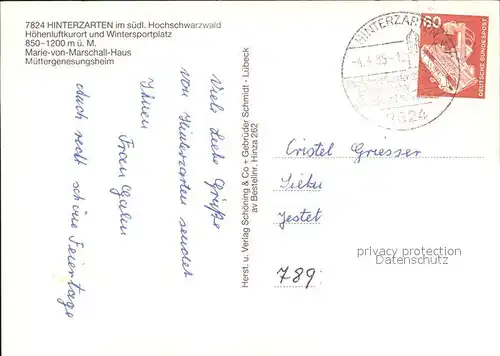 7824 HINTERZARTEN im südl. Hochschwarzwald
Höhenluftkurort und Wintersportplatz
850-1200 m ü. M.
Marie-von-Marschall-Haus
Müttergenesungsheim
Viele Liebe Grüße
von Hinterzarten sendet
Ihnen
Frau
Auch recht schöne Feiertage
Herst. u. Verlag Schöning & Co + Gebrüder Schmidt · Lübeck
av Bestellnr. Hinza 262
HINTERZARTEN
7824
80
DEUTSCHE BUNDESPOST
Cristel Griesser
Jestet
789
privacy protection
Datenschutz